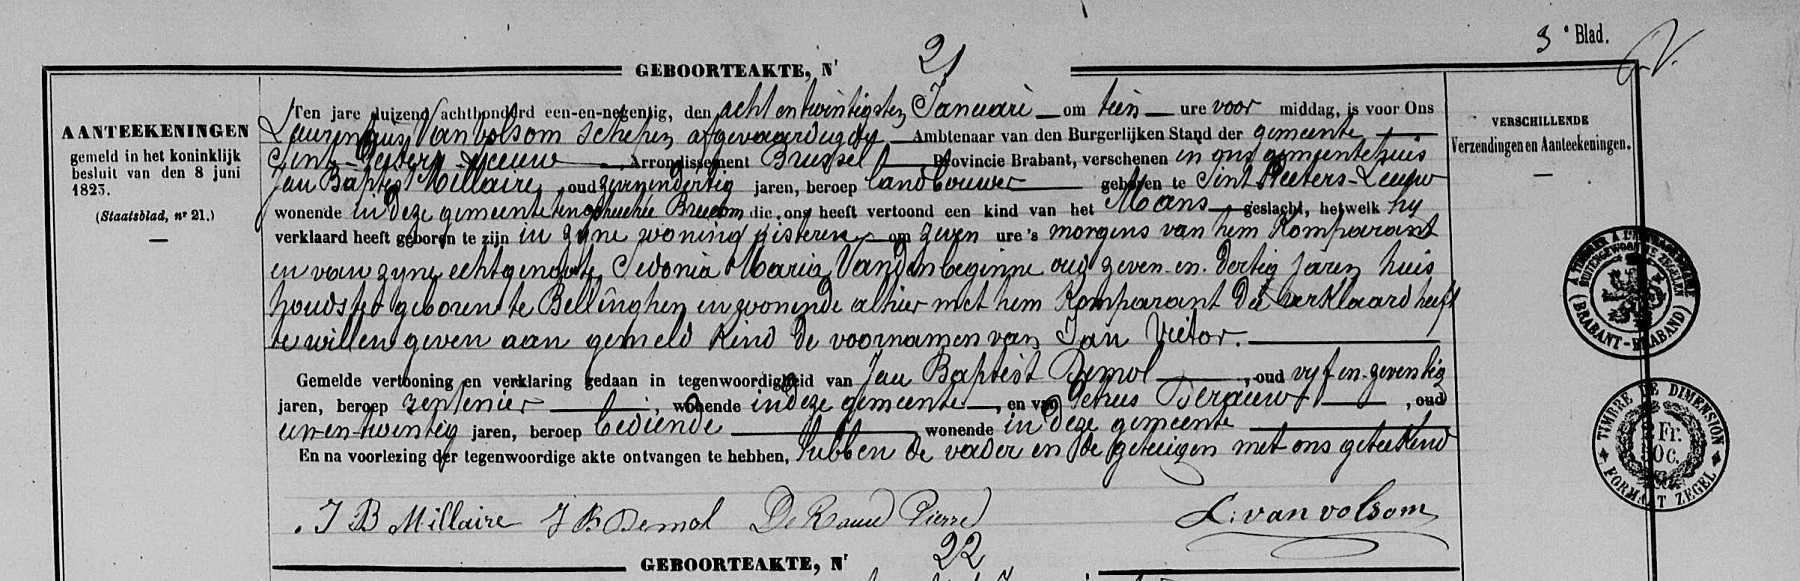 3e Blad.
GEBOORTEAKTE, Nr 21
AANTEEKENINGEN
gemeld in het koninklijk
besluit van den 8 juni
1823.
(Staatsblad, nr 21.)
VERSCHILLENDE
Verzendingen en Aanteekeningen.
Ten jare duizend achthonderd een-en-negentig, den acht en twintigsten Januari om tien ure voor middag, is voor Ons
Laurentius Van Volsom Schepen afgevaardigde Ambtenaar van den Burgerlijken Stand der gemeente
Sint-Peeters-Leeuw Arrondissement Brussel Provincie Brabant, verschenen in ons gemeentehuis
Jan Baptist Millaire, oud zevenendertig jaren, beroep landbouwer geboren te Sint Peeters-Leeuw
wonende in deze gemeente die ons heeft vertoond een kind van het Mans geslacht, hetwelk hij
verklaard heeft geboren te zijn in zyne woning gisteren om zeven ure 's morgens van hem Komparant
en van zyne echtgenote Sidonia Maria Vandenbeginne oud zeven-en-dertig jaren huis
houdster geboren te Bellinghen en wonende alhier met hem Komparant die verklaard heeft
te willen geven aan gemeld Kind de voornamen van Jan Victor.
Gemelde vertooning en verklaring gedaan in tegenwoordigheid van Jan Baptist Demol, oud vyf en zeventig
jaren, beroep rentenier, wonende in deze gemeente, en van Petrus Deraeuw, oud
een-en-twintig jaren, beroep bediende wonende in deze gemeente
En na voorlezing der tegenwoordige akte ontvangen te hebben, hebben de vader en de getuigen met ons geteekend
J B Millaire J B Demol Pierre L. van volsom
TIMBRE DE DIMENSION
Fr.
50c.
FORMAAT ZEGEL
BRABANT-BRABAND
GEBOORTEAKTE, Nr 22